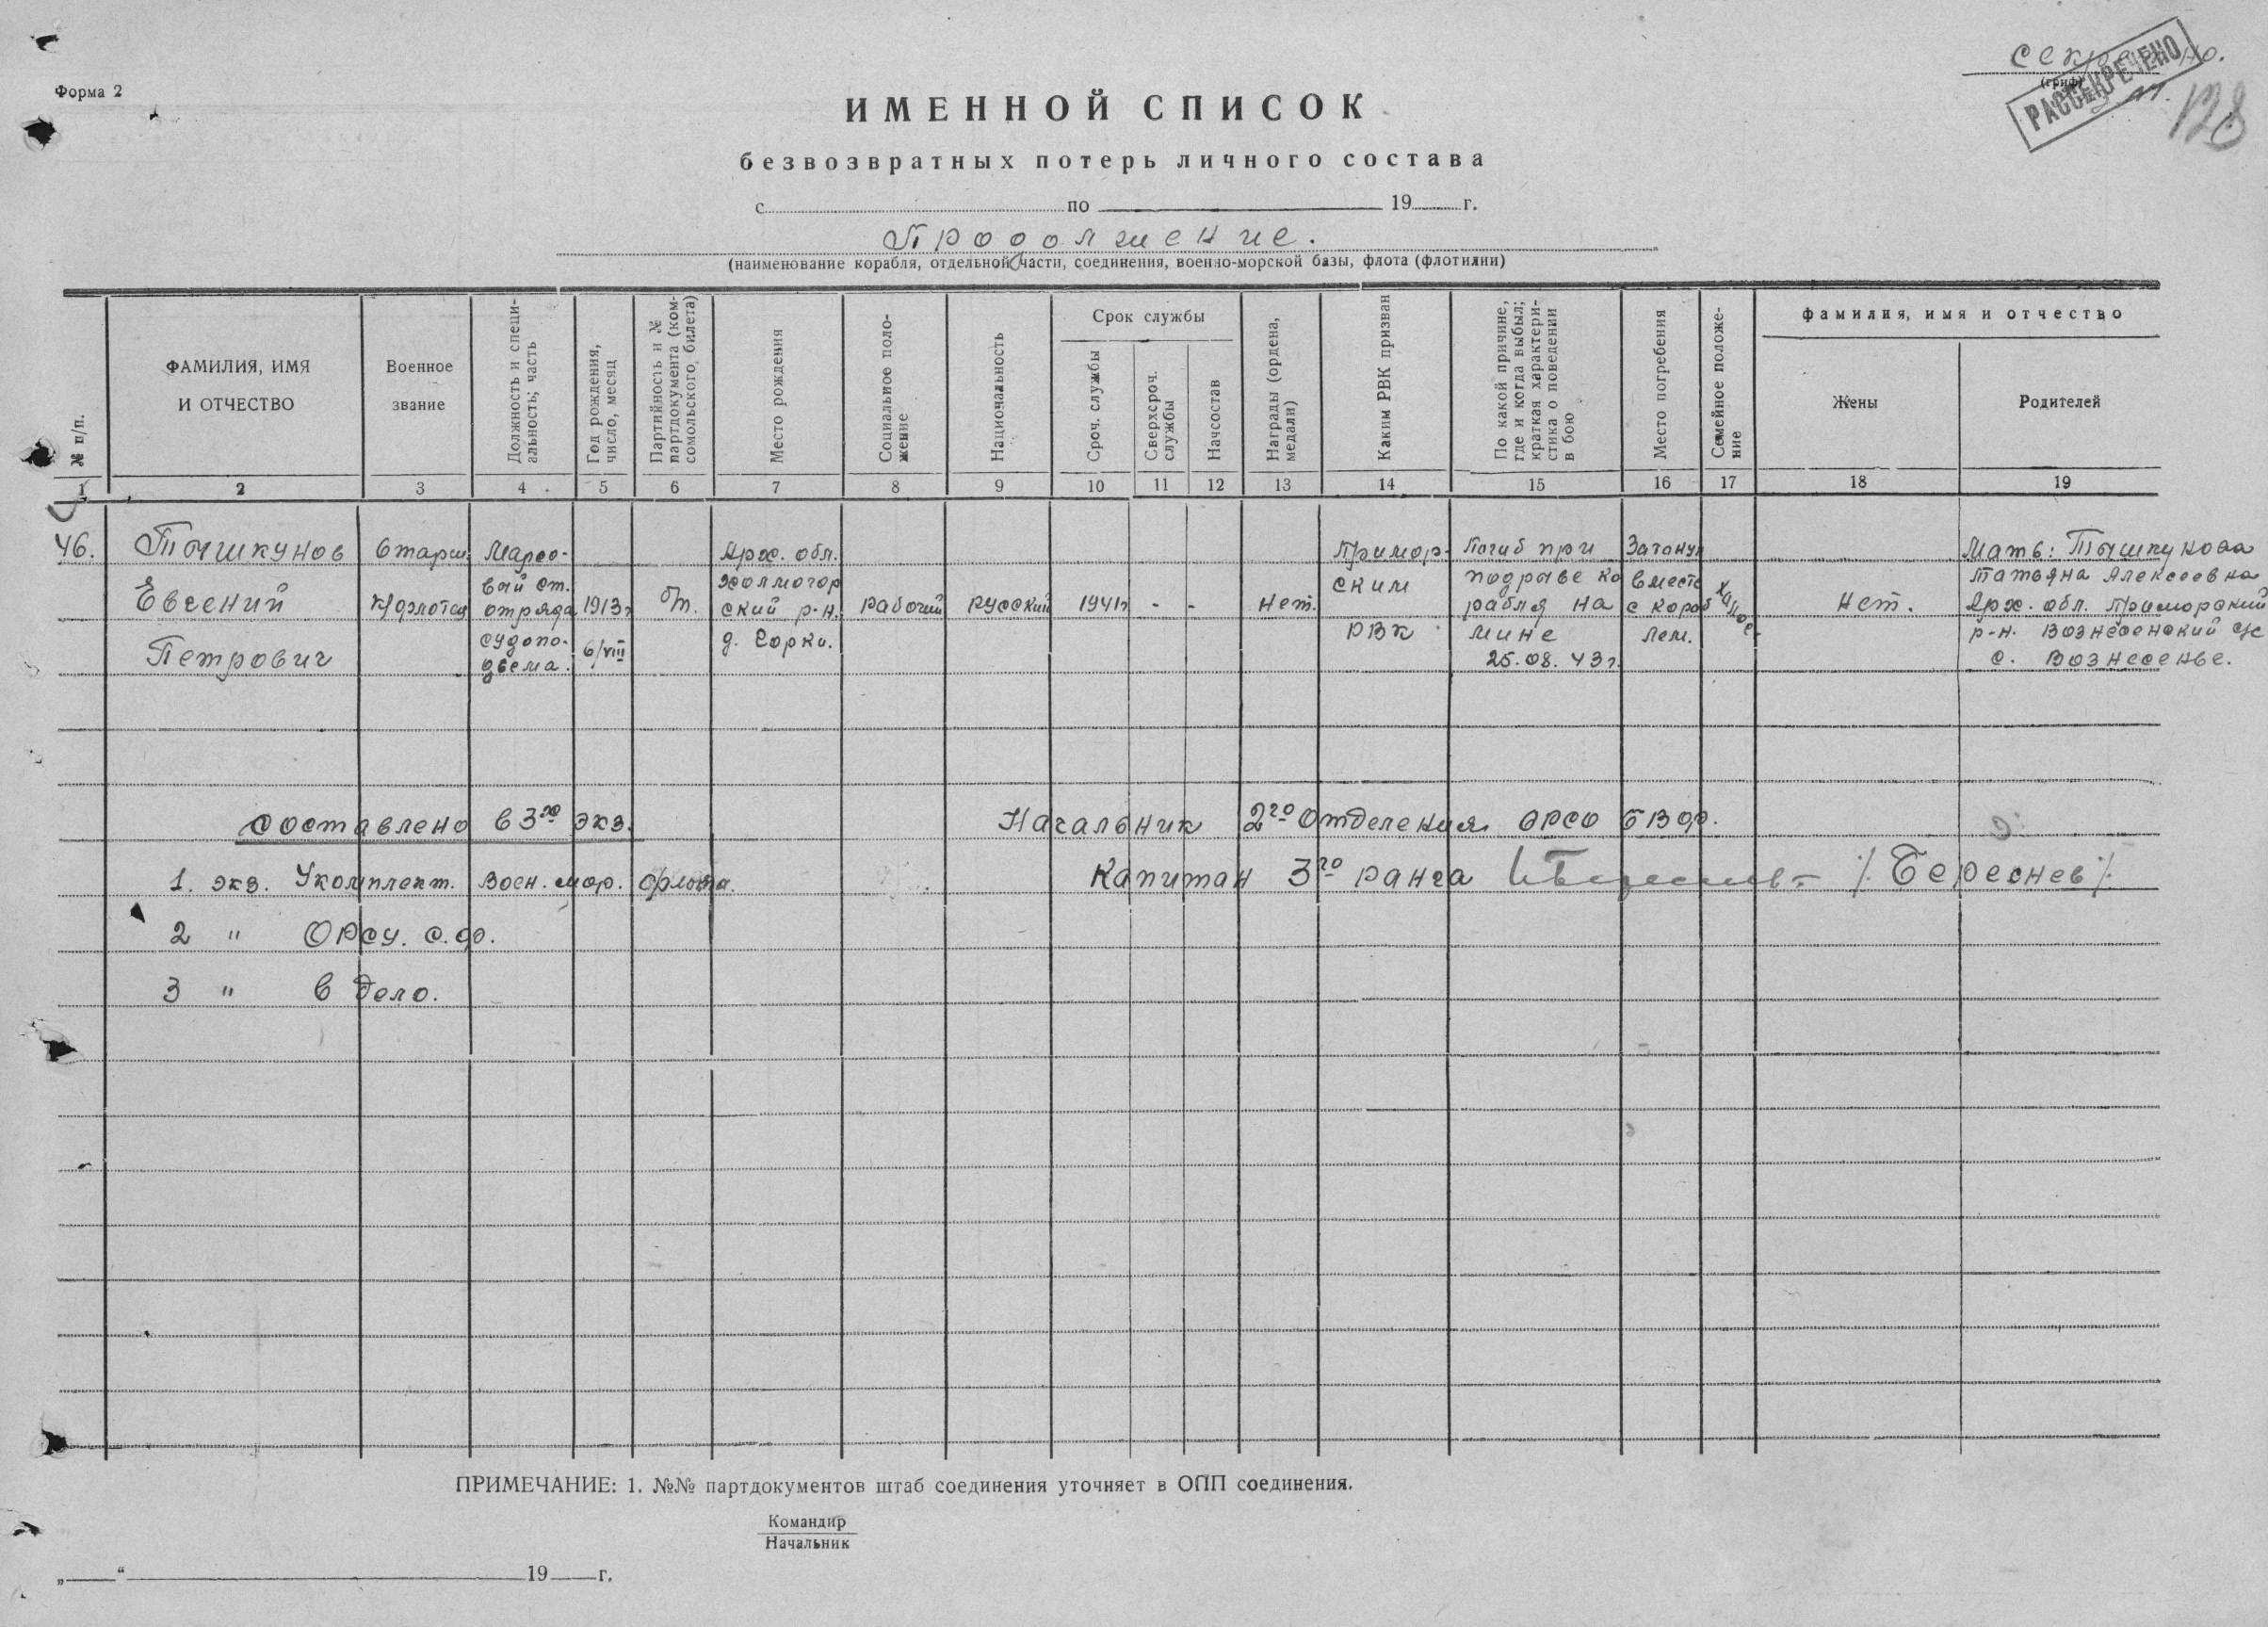 Форма 2
РАССЕКРЕЧЕНО
(гриф)
128
ИМЕННОЙ СПИСОК
безвозвратных потерь личного состава
с по 19 г.
Продолжение.
(наименование корабля, отдельной части, соединения, военно-морской базы, флота (флотилии)
№ п/п.
ФАМИЛИЯ, ИМЯ
И ОТЧЕСТВО
Военное
звание
Должность и специ-
альность; часть
Год рождения,
число, месяц
Партийность и №
партдокумента (ком-
сомольского, билета)
Место рождения
Социальное поло-
жение
Национальность
Срок службы
Сроч. службы
Сверхсроч.
службы
Начсостав
Награды (ордена,
медали)
Каким РВК призван
По какой причине,
где и когда выбыл;
краткая характери-
стика о поведении
в бою
Место погребения
Семейное положе-
ние
фамилия, имя и отчество
Жены
Родителей
1 2 3 4 5 6 7 8 9 10 11 12 13 14 15 16 17 18 19
46.
Тышкунов
Евгений
Петрович
Старш.
к/флотец
Марсо-
вый от.
отряда
судопо-
двема.
1913г
6/VIII
б/п.
Арх. обл.
Холмогор
ский р-н.
д. Горки.
рабочий
русский
1941г
-
-
Нет.
Примор-
ским
РВК
Погиб при
подрыве ко
рабля на
мине
25.08.43г.
Затонул
вместе
с кораб
лем.
Холост
Нет.
Мать: Тышкунова
Татьяна Алексеевна
Арх. обл. Приморский
р-н. Вознесенский с/с
с. Вознесенье.
Составлено в 3х экз.
Начальник 2го Отделения ОРСО БВФ.
1. экз. Укомплект. Воен. мор. флота.
Капитан 3го ранга /Береснев/.
2 " ОРСУ. С.Ф.
3 " в дело.
ПРИМЕЧАНИЕ: 1. №№ партдокументов штаб соединения уточняет в ОПП соединения.
Командир
Начальник
„ “ 19 г.